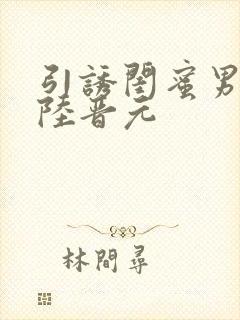 引誘閨蜜男
陸晋元
林間尋